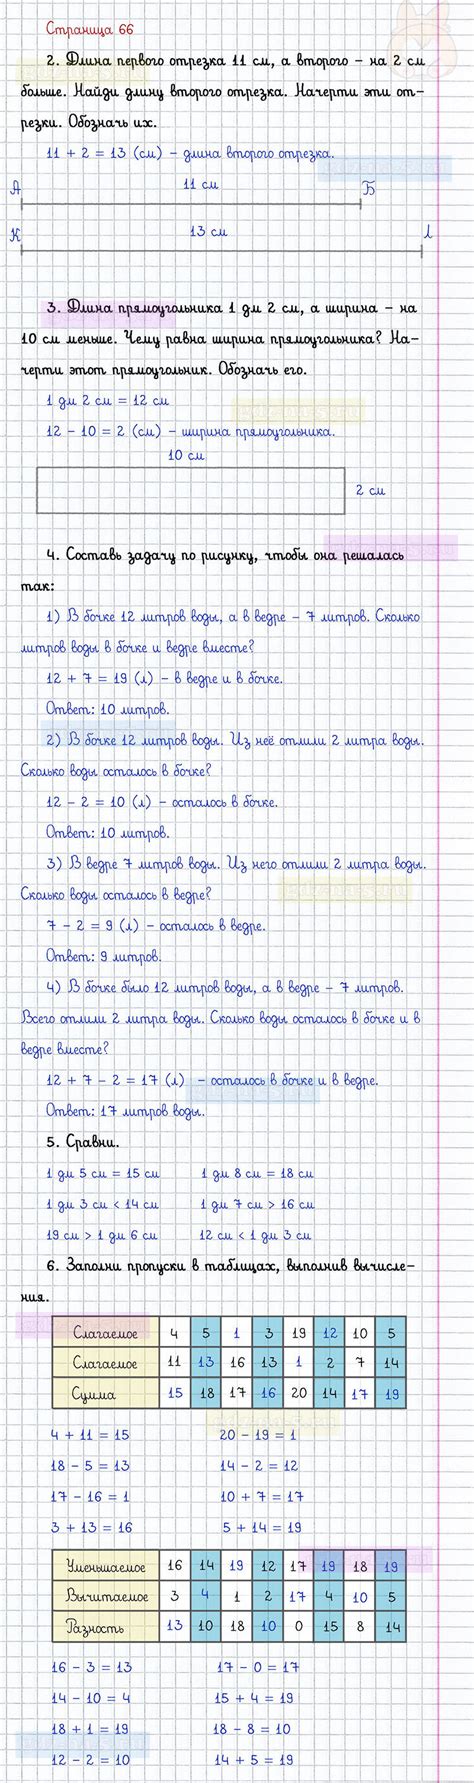 Страница 66
2. Длина первого отрезка 11 см, а второго – на 2 см
больше. Найди длину второго отрезка. Начерти эти от-
резки. Обозначь их.
11 + 2 = 13 (см) – длина второго отрезка.
А 11 см Б
К 13 см Л
3. Длина прямоугольника 1 дм 2 см, а ширина – на
10 см меньше. Чему равна ширина прямоугольника? На-
черти этот прямоугольник. Обозначь его.
1 дм 2 см = 12 см
12 – 10 = 2 (см) – ширина прямоугольника.
10 см
2 см
4. Составь задачу по рисунку, чтобы она решалась
так:
1) В бочке 12 литров воды, а в ведре – 7 литров. Сколько
литров воды в бочке и ведре вместе?
12 + 7 = 19 (л) – в ведре и в бочке.
Ответ: 10 литров.
2) В бочке 12 литров воды. Из неё отлили 2 литра воды.
Сколько воды осталось в бочке?
12 – 2 = 10 (л) – осталось в бочке.
Ответ: 10 литров.
3) В ведре 7 литров воды. Из него отлили 2 литра воды.
Сколько воды осталось в ведре?
7 – 2 = 9 (л) – осталось в ведре.
Ответ: 9 литров.
4) В бочке было 12 литров воды, а в ведре – 7 литров.
Всего отлили 2 литра воды. Сколько воды осталось в бочке и в
ведре вместе?
12 + 7 – 2 = 17 (л) – осталось в бочке и в ведре.
Ответ: 17 литров воды.
5. Сравни.
1 дм 5 см = 15 см 1 дм 8 см = 18 см
1 дм 3 см < 14 см 1 дм 7 см > 16 см
19 см > 1 дм 6 см 12 см < 1 дм 3 см
6. Заполни пропуски в таблицах, выполнив вычисле-
ния.
Слагаемое 4 5 1 3 19 12 10 5
Слагаемое 11 13 16 13 1 2 7 14
Сумма 15 18 17 16 20 14 17 19
4 + 11 = 15 20 – 19 = 1
18 – 5 = 13 14 – 2 = 12
17 – 16 = 1 10 + 7 = 17
3 + 13 = 16 5 + 14 = 19
Уменьшаемое 16 14 19 12 17 19 18 19
Вычитаемое 3 4 1 2 17 4 10 5
Разность 13 10 18 10 0 15 8 14
16 – 3 = 13 17 – 0 = 17
14 – 10 = 4 15 + 4 = 19
18 + 1 = 19 18 – 8 = 10
12 – 2 = 10 14 + 5 = 19